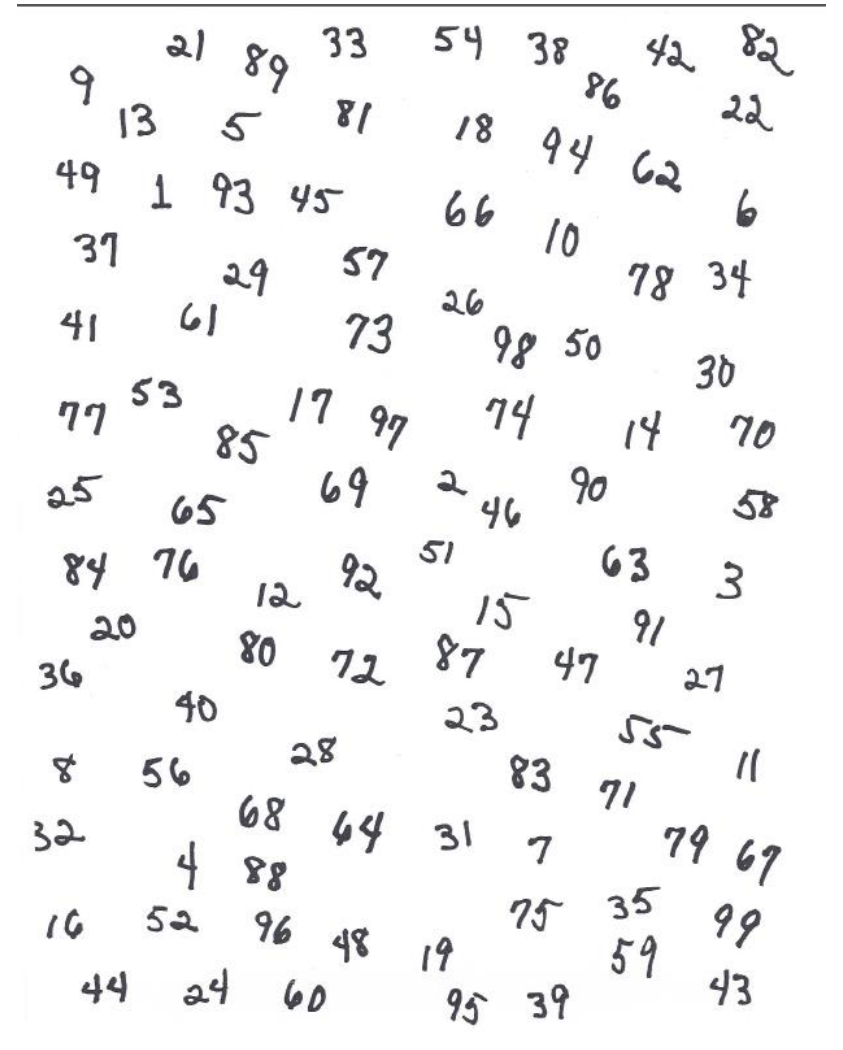 21 89 33 54 38 42 82
9 86
13 5 81 18 22
49 1 93 45 94 62
66 6
37 29 57 10 78 34
41 61 73 26 98 50
30
77 53 17 97 74 14 70
85
25 65 69 2 46 90 58
84 76 12 92 51 63 3
20 15 91
36 80 72 87 47 27
40 23 55
8 56 28 83 71 11
32 68 64 31 7 79 67
4 88
16 52 96 48 75 35 99
19 59
44 24 60 95 39 43